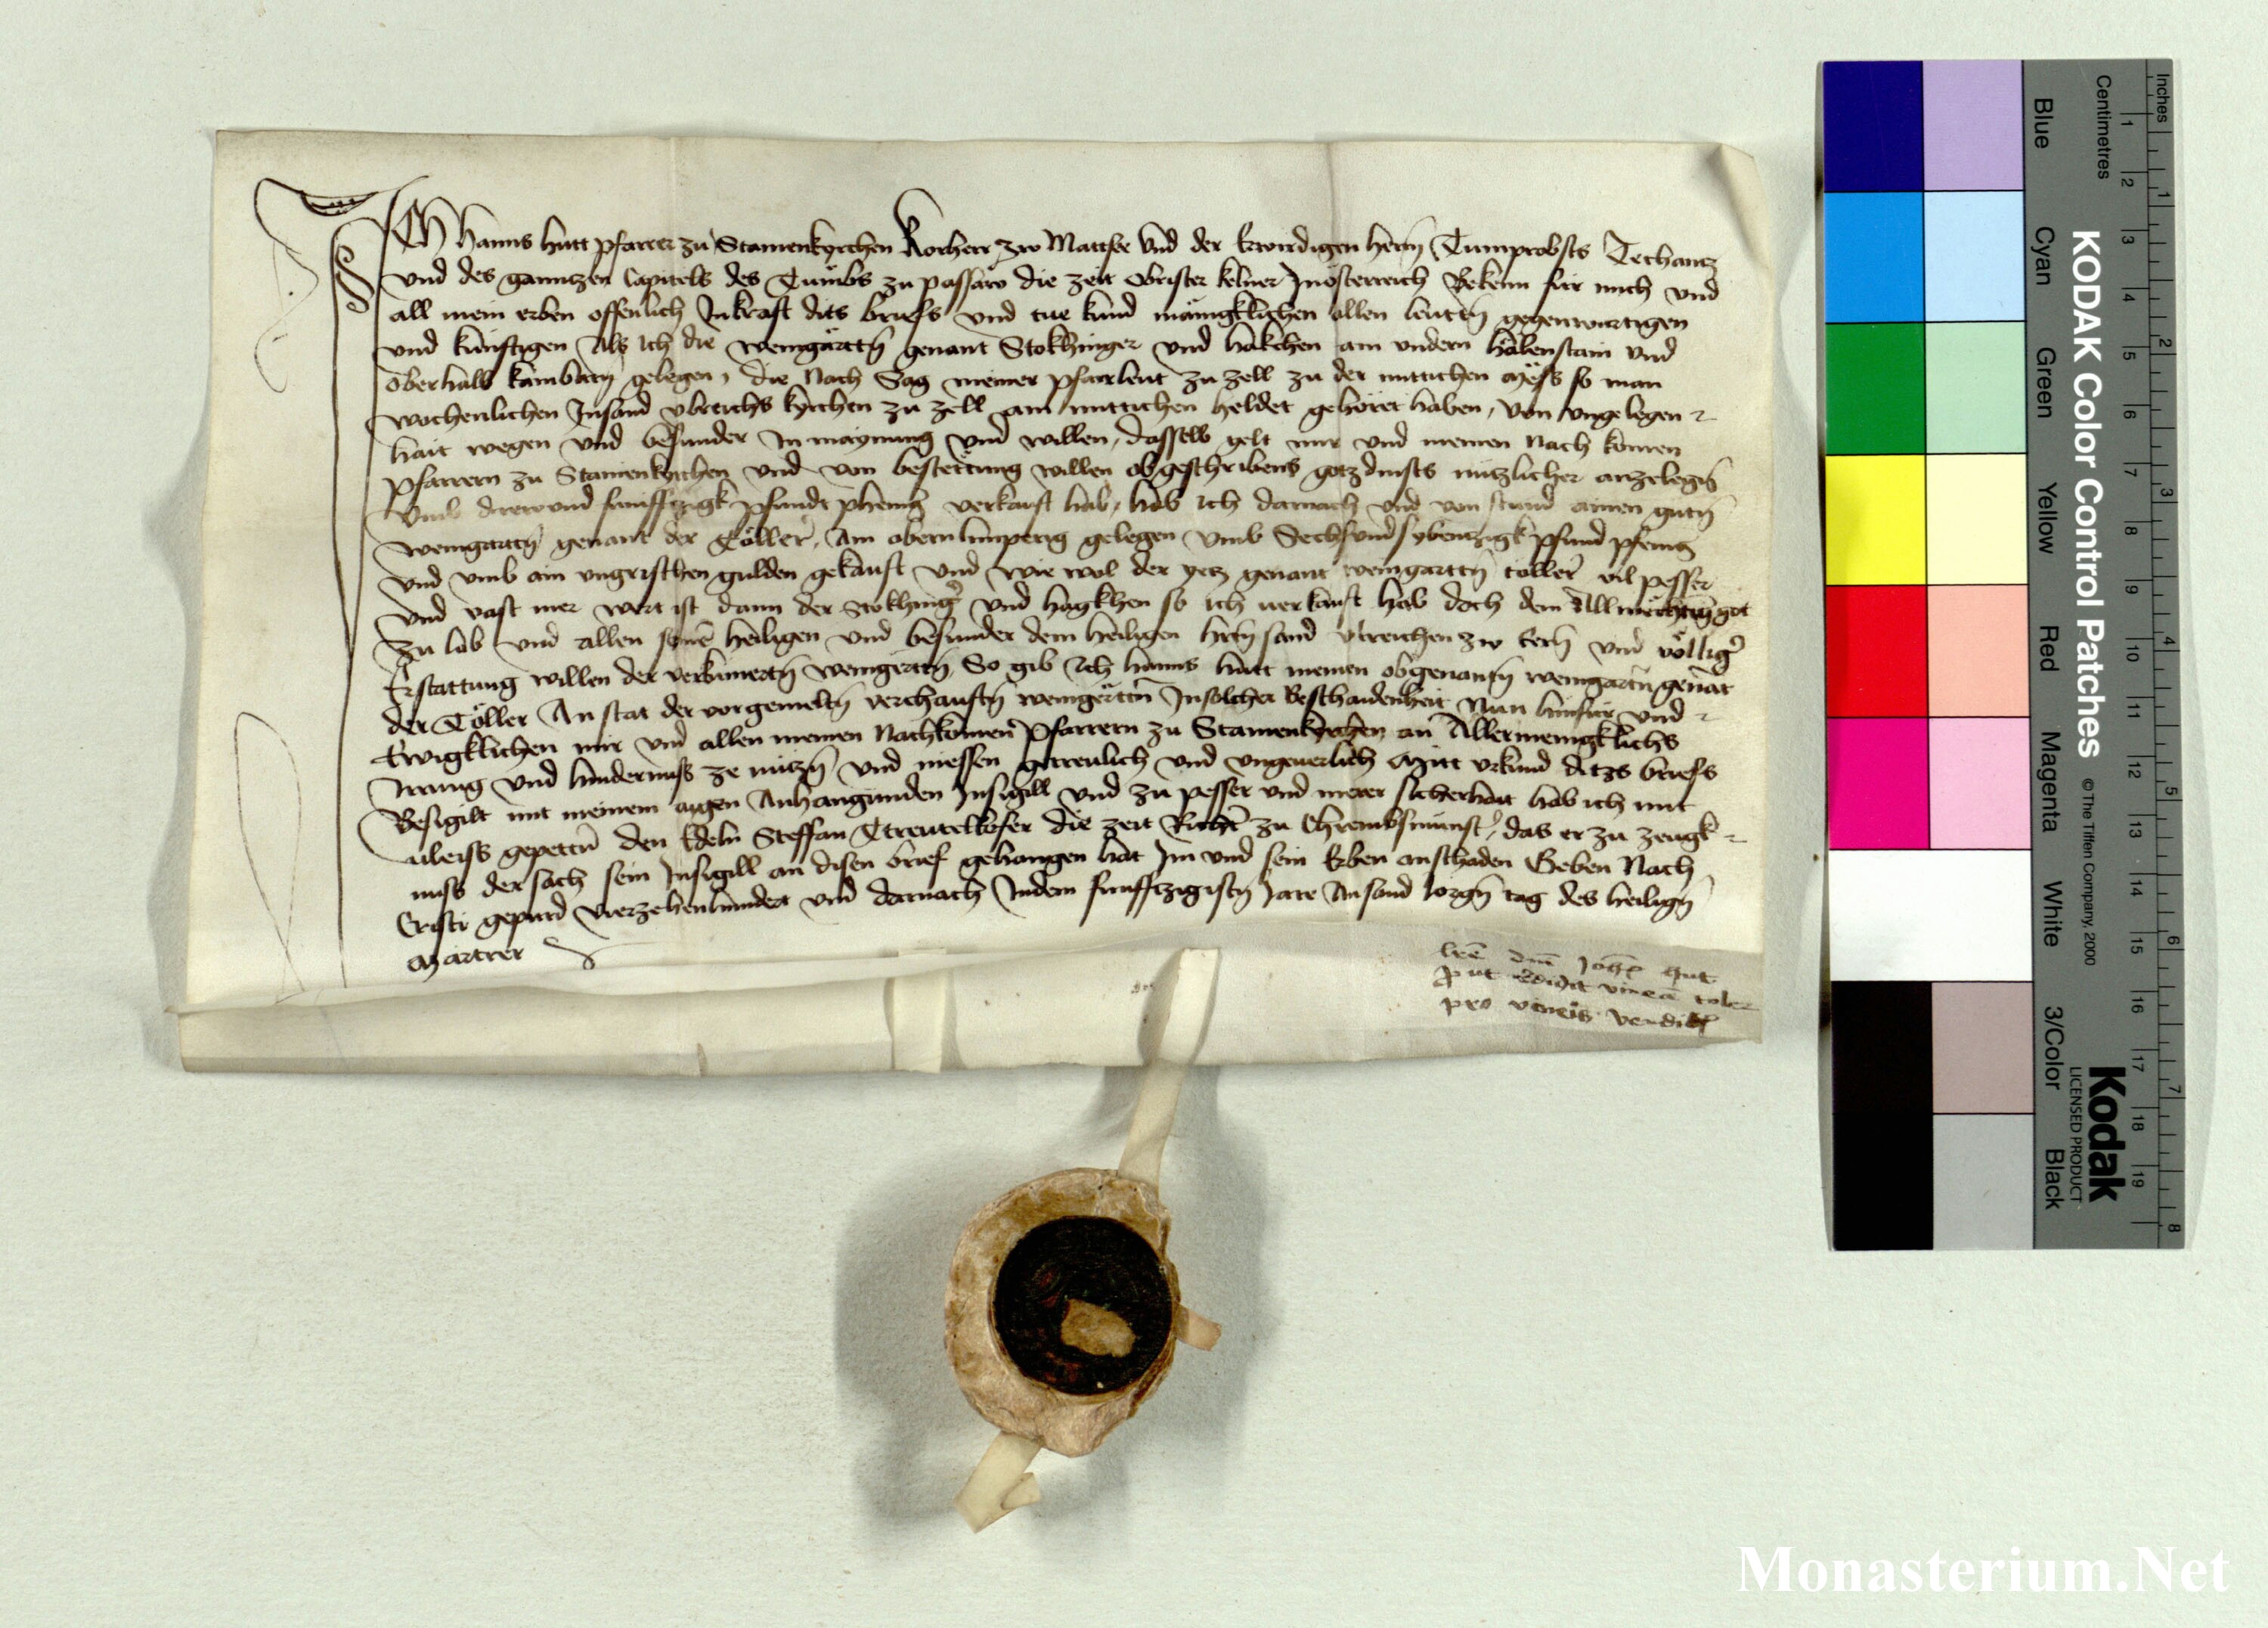 Ich Hanns hutt pfarrer zu Stamenkyrchen Korherr zw Mattsee Vnd der Erwirdigen herrn Tumprobsts Techantz
vnd des ganntzen Capitels des Tumbs zu passaw die zeit Obrister kelner Inösterreich Bekenn für mich vnd
all mein erben offenlich Inkraft dits briefs vnd tue kund mäinigklichen allen leuttn gegenwurtigen
vnd künftigen Als ich die weingärttn genant Stokhinger vnd häkchen am vndern hälenstain vnd
oberhalb kambarn gelegen, die Nach Sag meiner pfarrleut zu zell zu der mittichen mëss so man
wochenlichen Insand vlreichs kyrchen zu zell am mittichen heldet gehöret haben, von vngelegen
hait wegen vnd besunder In maynung vnd willen, dasselb gelt mir vnd meinen Nach komen
pfarrern zu Stamenkyrchen vnd von bestettung willen obgeschribens gotzdinsts nützlicher anzelegn
vmb drewvnd funfftzigk pfundt phening verkauft hab, hab ich darnach vnd von stund ainen gutn
weingarttn genant der Töller, Am obern hinperig gelegen vmb Sechsvndsybentzigk pfund pfenig
vnd vmb ain vngrischen gulden gekauft vnd wie wol der yetz genant weingarttn töller vil pesser
vnd vast mer wert ist dann der Stokhinger vnd hagkhen so ich verkauft hab doch dem Allmechtign got
zu lob vnd allen seinē heiligen vnd besunder dem heiligen hrrn sand vlreichen zw Eern vnd völliger
Erstattung willen der verkumertn weingerttn, So gib Ich hanns hutt meinen obgenantn weingartn genat
der Töller An stat der vorgemeltn verchauftn weingërttn Insolcher Beschaidenheit Nun hinfür vnd
Ewigklichen mir vnd allen meinen Nachkomen pfarrern zu Stamenkyrchen an Allermenigklichs
Irrung vnd hindernuss ze nützn vnd niessen getreulich vnd vngeuerlich Mitt vrkund ditzs briefs
Besigilt mit meinem aigen Anhangunden Insigill vnd zu pesser vnd merer sicherhait hab ich mit
vleiss gepettn den Edeln Steffan Streutelkofer die zeit Richter zu Chrembsmünster, das er zu zeugk
nuss der sach sein Insigill an disen brief gehangen hat Im vnd sein Erben anschaden Geben Nach
Cristi gepurd vierzehenhundert vnd darnach Indem funfftzigistn Jare An sand Jorgn tag des heilign
Martrer
lrē dnī Johis hut
put edidit vineā toler
pro vineis vendit
Inches
Centimetres
1
2
3
4
5
6
7
8
1
2
3
4
5
6
7
8
9
10
11
12
13
14
15
16
17
18
19
KODAK Color Control Patches © The Tiffen Company, 2000
Kodak
LICENSED PRODUCT
Blue
Cyan
Green
Yellow
Red
Magenta
White
3/Color
Black
Monasterium.Net